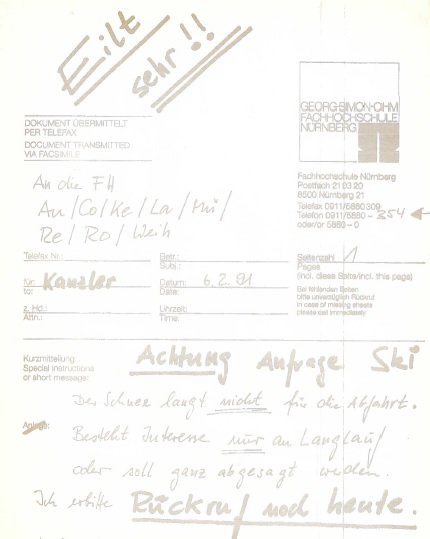 Eilt
sehr!!
GEORG-SIMON-OHM
FACHHOCHSCHULE
NÜRNBERG
DOKUMENT ÜBERMITTELT
PER TELEFAX
DOCUMENT TRANSMITTED
VIA FACSIMILE
Fachhochschule Nürnberg
Postfach 21 03 20
8500 Nürnberg 21
Telefax 0911/5880 309
Telefon 0911/5880 - 254
oder/or 5880 - 0
An die FH
An/Co/Ke/La/Mü/
Re/Ro/Weih
Telefax Nr.:
Betr.:
Subj.:
Seitenzahl 1
Pages
(incl. diese Seite/incl. this page)
für: Kanzler
to:
Datum: 6.2.91
Date:
Bei fehlenden Seiten
bitte unverzüglich Rückruf
in case of missing sheets
please call immediately
z. Hd.:
Attn.:
Uhrzeit:
Time:
Kurzmitteilung
Special instructions
or short message:
Achtung Anfrage Ski
Der Schnee langt nicht für die Abfahrt.
Anlage:
Besteht Interesse nur an Langlauf
oder soll ganz abgesagt werden.
Ich erbitte Rückruf noch heute.